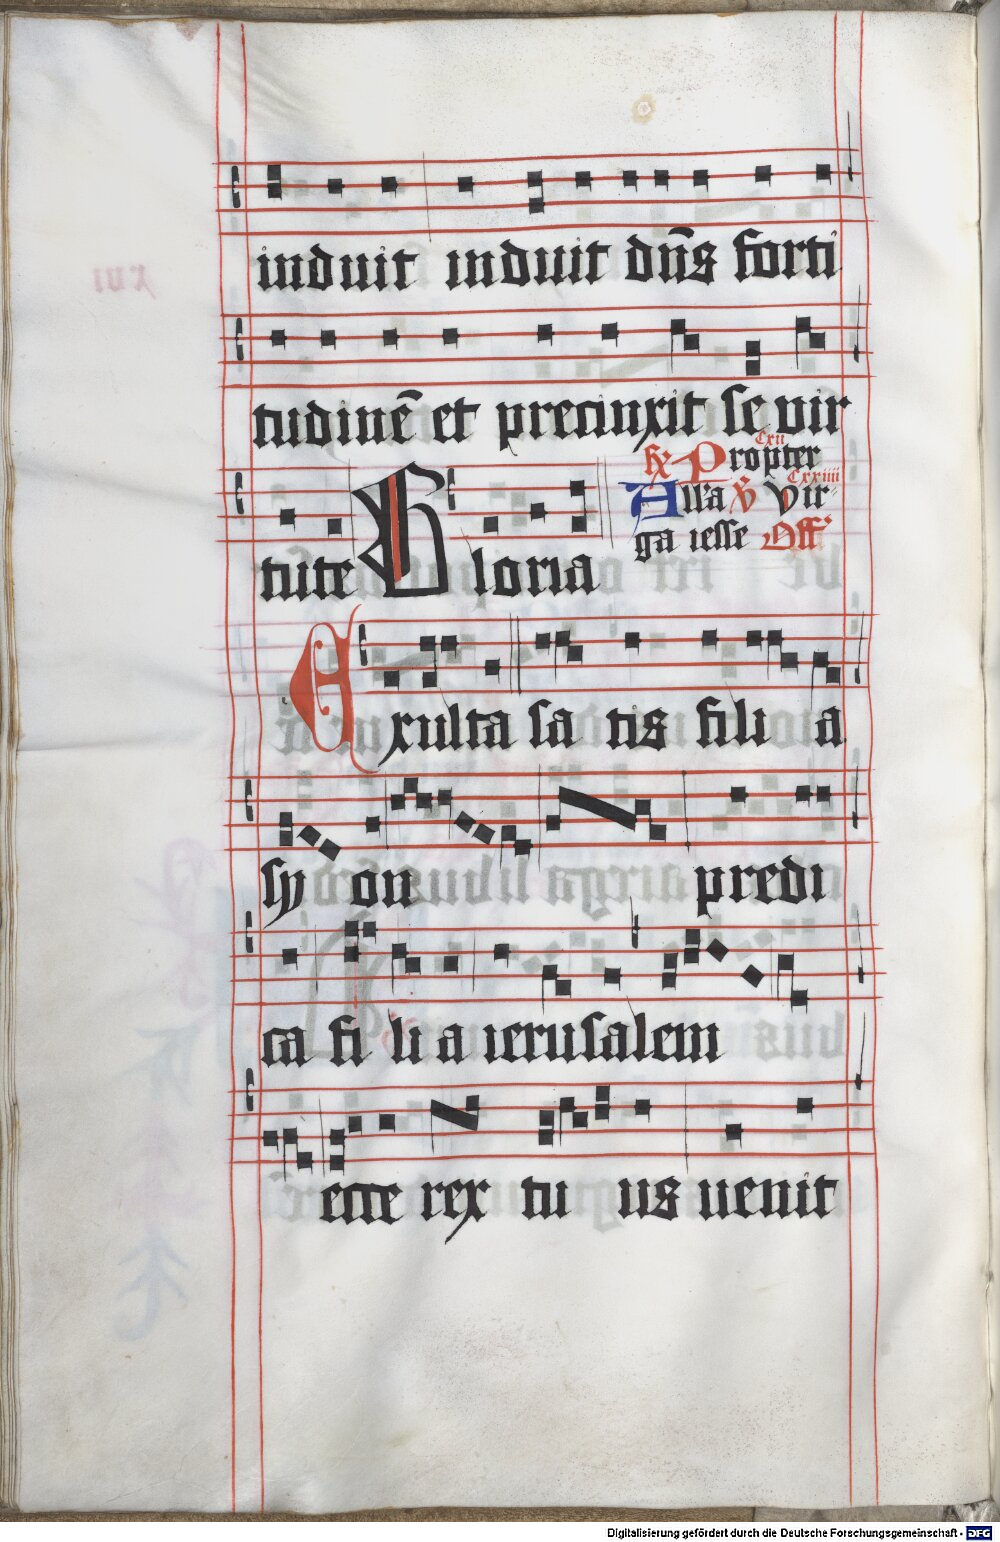 induit induit dn̄s forti
tudinē et precinxit se vir
tute Gloria
Cxii
R̸ Propter
Cxxiiii
All'a v̸ Vir-
ga iesse Off'
Exulta satis filia
syon predi
ca filia ierusalem
ecce rex tuus uenit
Digitalisierung gefördert durch die Deutsche Forschungsgemeinschaft - DFG